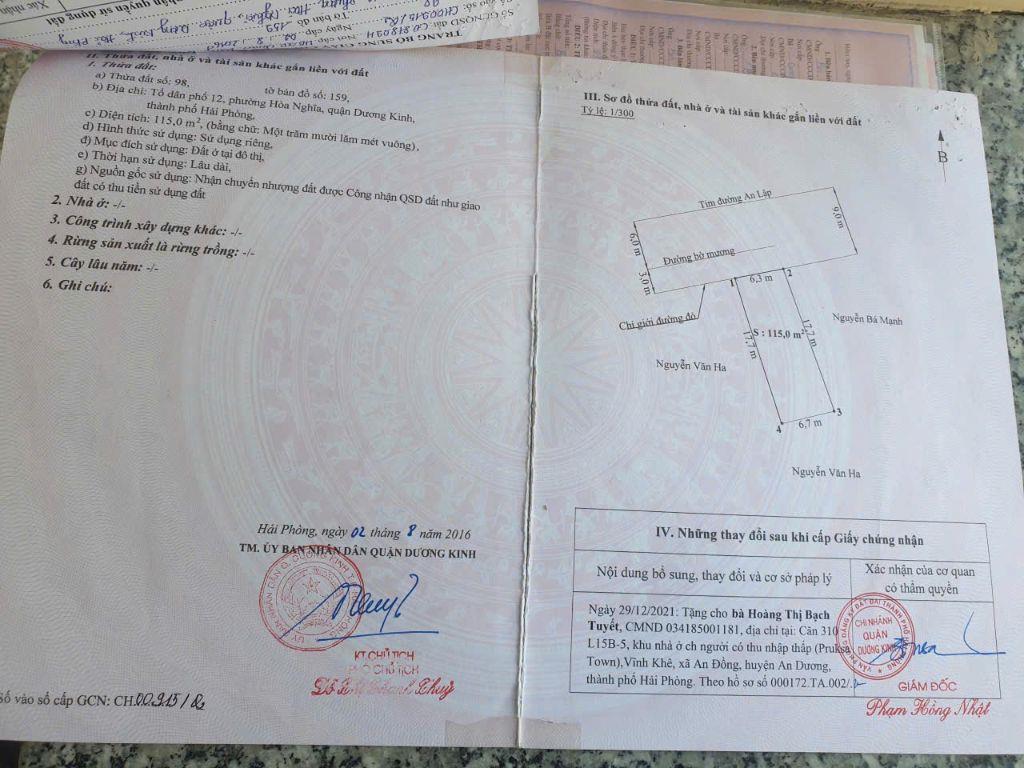 TRANG BỔ SUNG
II. Thửa đất, nhà ở và tài sản khác gắn liền với đất
1. Thửa đất:
a) Thửa đất số: 98, tờ bản đồ số: 159,
b) Địa chỉ: Tổ dân phố 12, phường Hòa Nghĩa, quận Dương Kinh,
thành phố Hải Phòng,
c) Diện tích: 115,0 m², (bằng chữ: Một trăm mười lăm mét vuông),
d) Hình thức sử dụng: Sử dụng riêng,
đ) Mục đích sử dụng: Đất ở tại đô thị,
e) Thời hạn sử dụng: Lâu dài,
g) Nguồn gốc sử dụng: Nhận chuyển nhượng đất được Công nhận QSD đất như giao
đất có thu tiền sử dụng đất
2. Nhà ở: -/-
3. Công trình xây dựng khác: -/-
4. Rừng sản xuất là rừng trồng: -/-
5. Cây lâu năm: -/-
6. Ghi chú:
Hải Phòng, ngày 02 tháng 8 năm 2016
TM. ỦY BAN NHÂN DÂN QUẬN DƯƠNG KINH
KT.CHỦ TỊCH
PHÓ CHỦ TỊCH
Số vào sổ cấp GCN: CH.00915
III. Sơ đồ thửa đất, nhà ở và tài sản khác gắn liền với đất
Tỷ lệ: 1/300
B
Tim đường An Lập
9,0 m
6,0 m
Đường bờ mương
3,0 m
1
6,3 m
2
Chỉ giới đường đỏ
17,7 m
S : 115,0 m²
17,7 m
Nguyễn Bá Mạnh
Nguyễn Văn Ha
3
4
6,7 m
Nguyễn Văn Ha
IV. Những thay đổi sau khi cấp Giấy chứng nhận
Nội dung bổ sung, thay đổi và cơ sở pháp lý
Xác nhận của cơ quan
có thẩm quyền
Ngày 29/12/2021: Tặng cho bà Hoàng Thị Bạch
Tuyết, CMND 034185001181, địa chỉ tại: Căn 310
L15B-5, khu nhà ở ch người có thu nhập thấp (Pruksa
Town),Vĩnh Khê, xã An Đồng, huyện An Dương,
thành phố Hải Phòng. Theo hồ sơ số 000172.TA.002/.
CHI NHÁNH
QUẬN
DƯƠNG KINH
GIÁM ĐỐC
Phạm Hồng Nhật